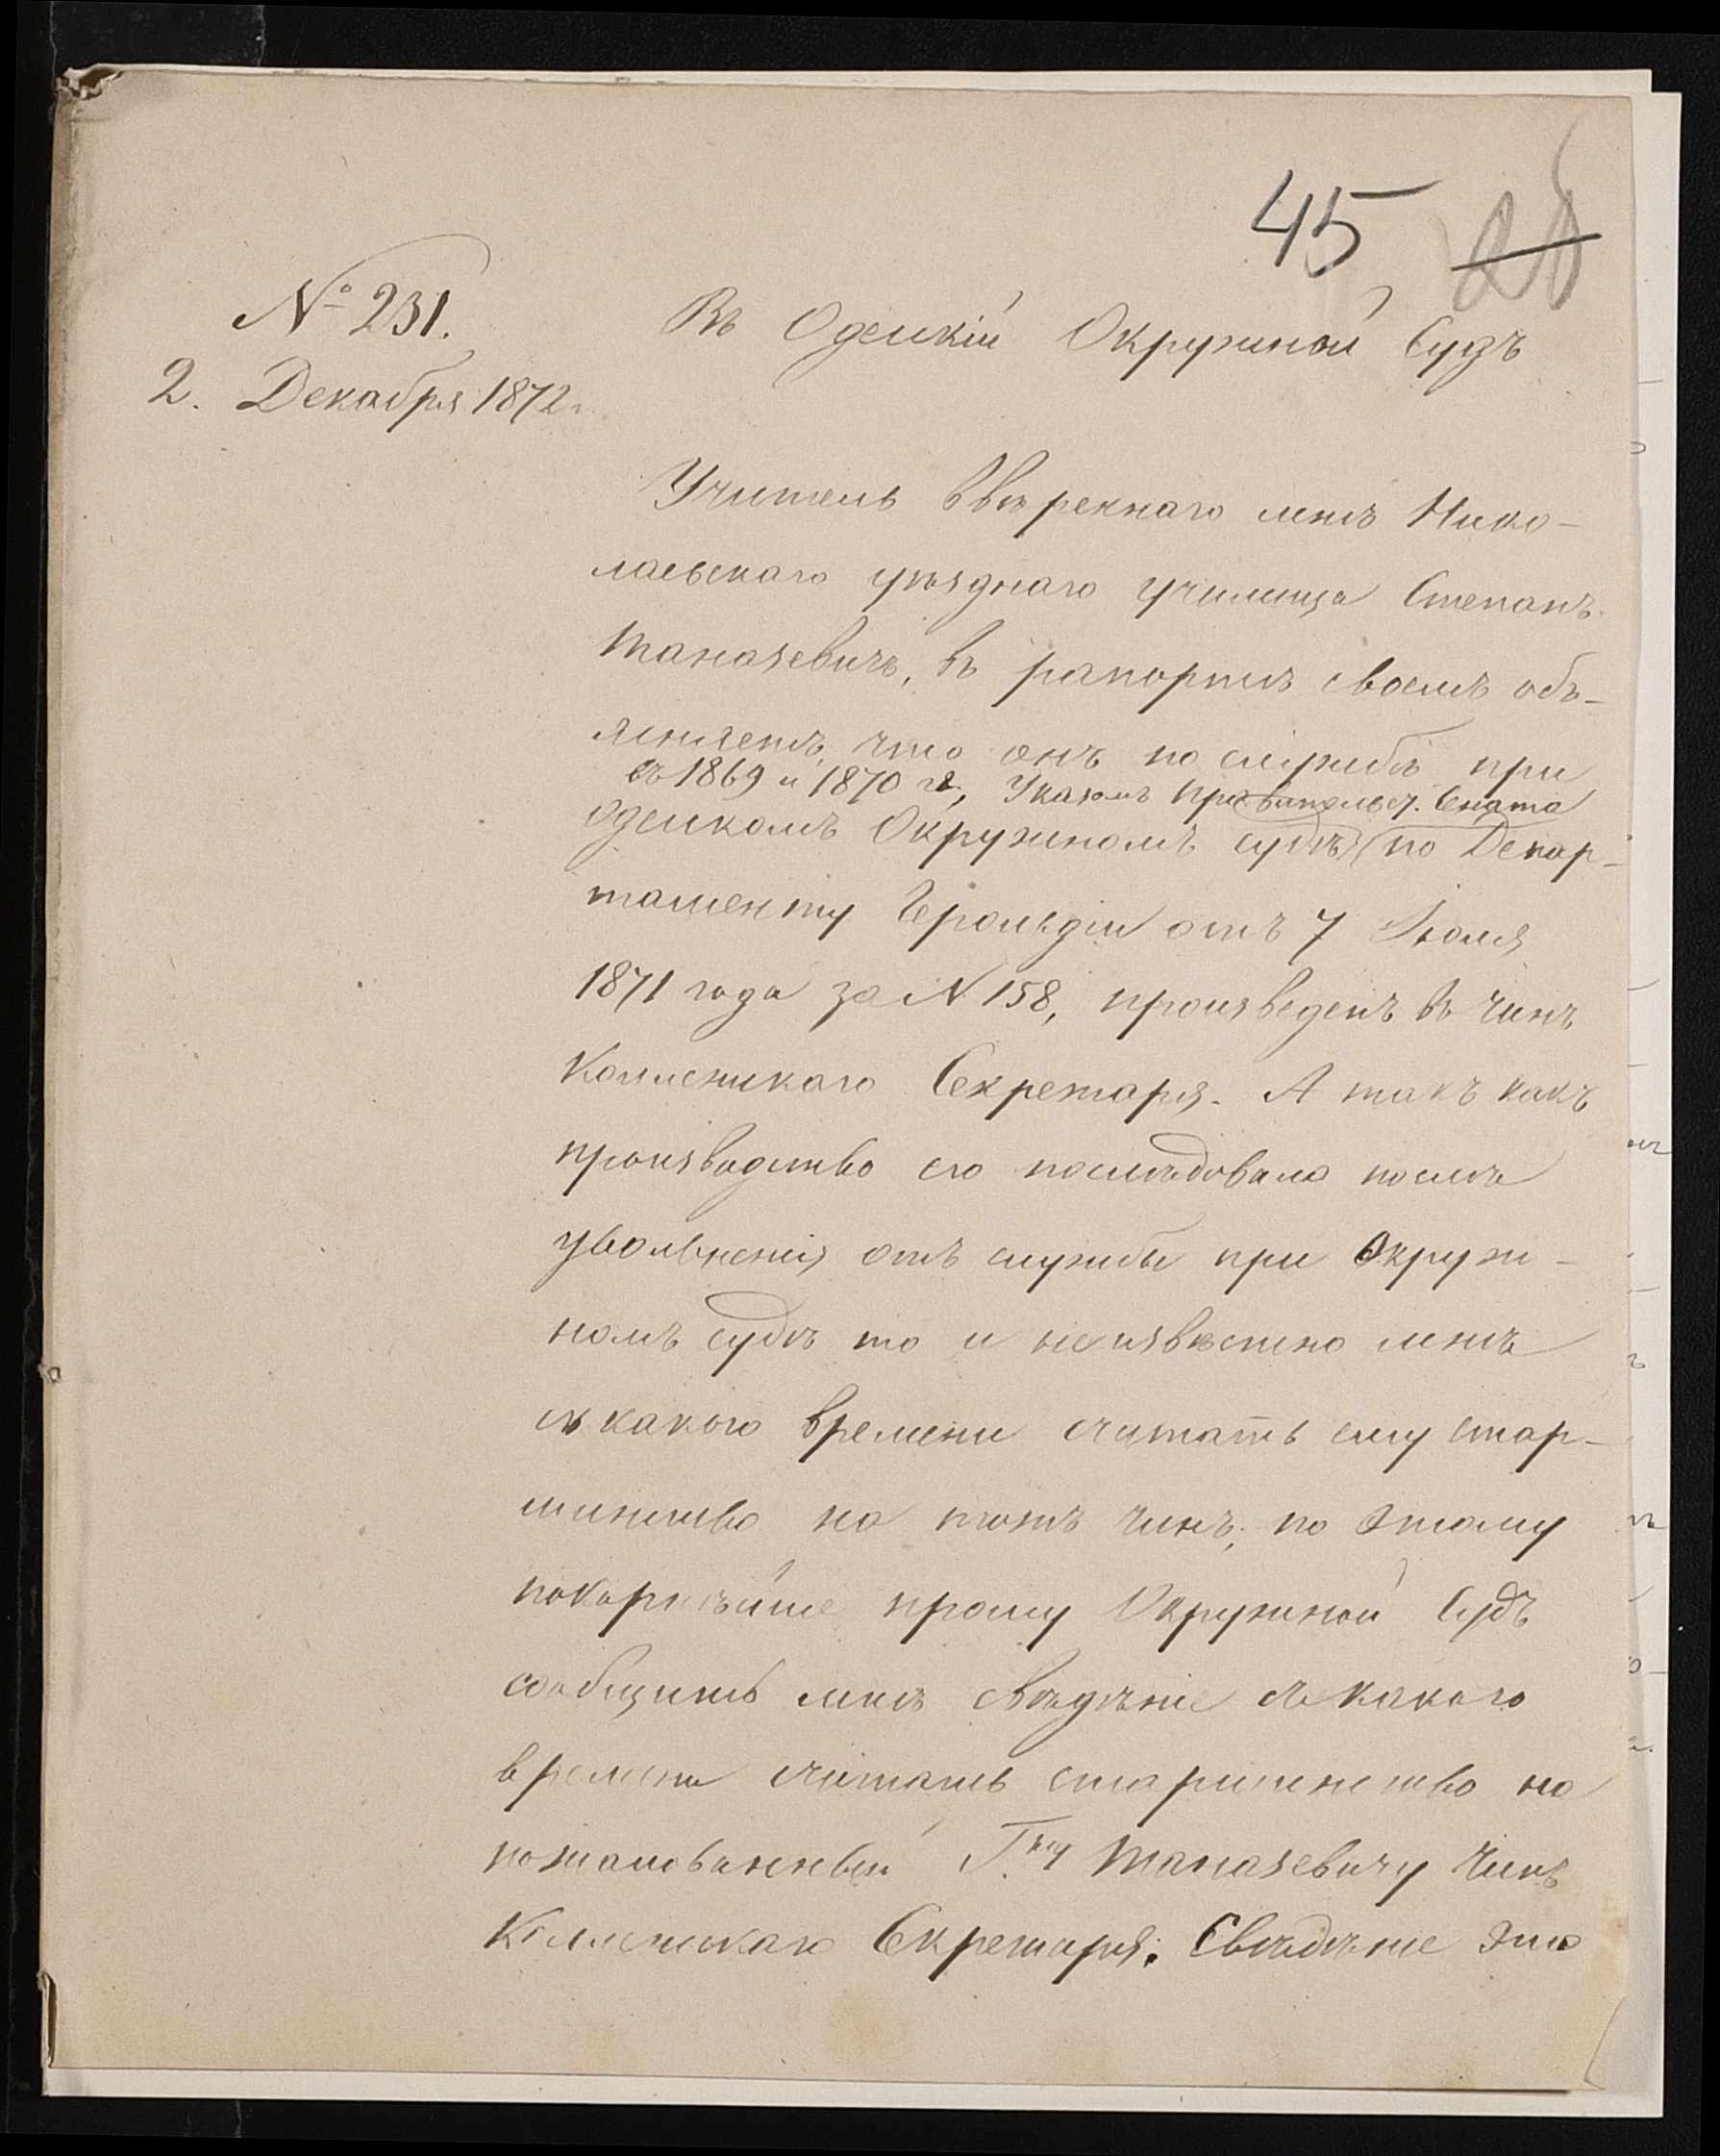 45 28
№ 231.
2. Декабря 1872 г.
Въ Одесскій Окружной Судъ
Учитель ввѣреннаго мнѣ Нико-
лаевскаго уѣзднаго училища Степанъ
Таназевичъ, въ рапортѣ своемъ объ-
ясняетъ, что онъ по службѣ при
въ 1869 и 1870 гг., Указомъ Правительст. Сената
Одесскомъ Окружномъ судѣ по Депар-
таменту Герольдіи отъ 7 Іюля
1871 года за N 158, произведенъ въ чинъ
Коллежскаго Секретаря. А такъ какъ
производство его послѣдовало послѣ
увольненія отъ службы при Окруж-
номъ судѣ то и неизвѣстно мнѣ
съ какого времени считать ему стар-
шинство на тотъ чинъ; по этому
покорнѣйше прошу Окружной Судъ
сообщить мнѣ свѣдѣніе съ какого
времени считать старшинство на
пожалованный Г.ну Таназевичу Чинъ
Коллежскаго Секретаря. Свѣдѣніе это